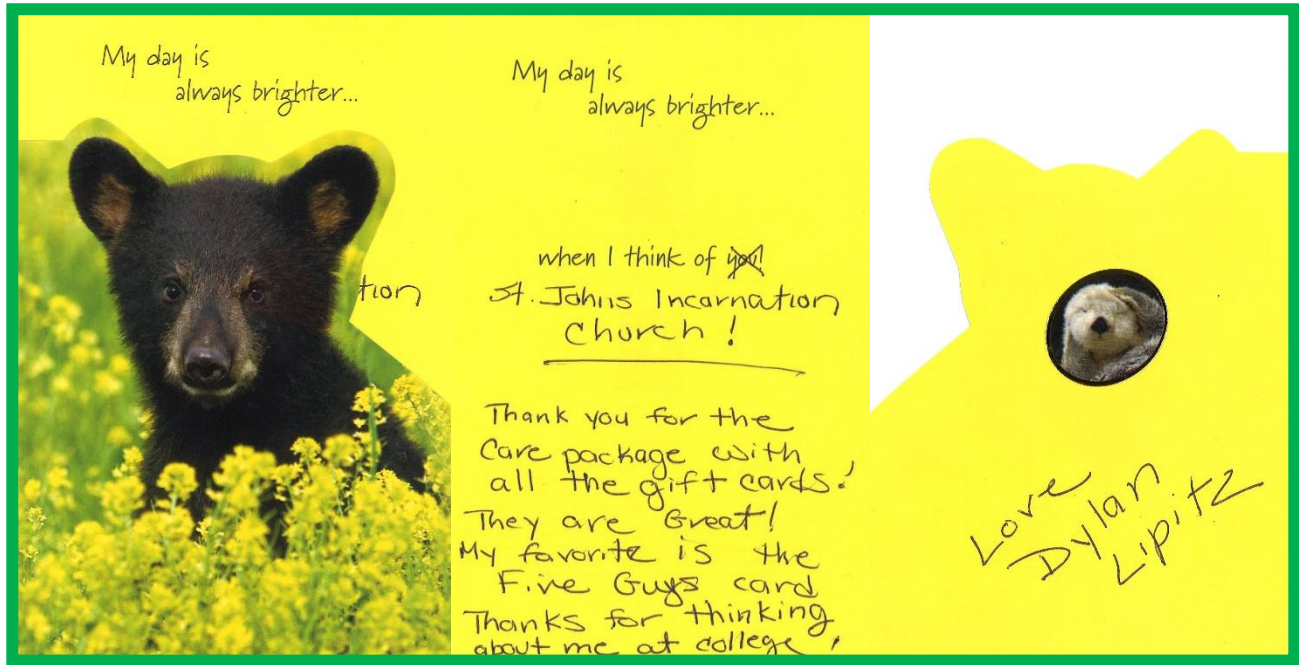 My day is
always brighter...
tion
My day is
always brighter...
when I think of you!
St. Johns Incarnation
Church!
Thank you for the
Care package with
all the gift cards!
They are Great!
My favorite is the
Five Guys card
Thanks for thinking
about me at college!
Love
Dylan
Lipitz